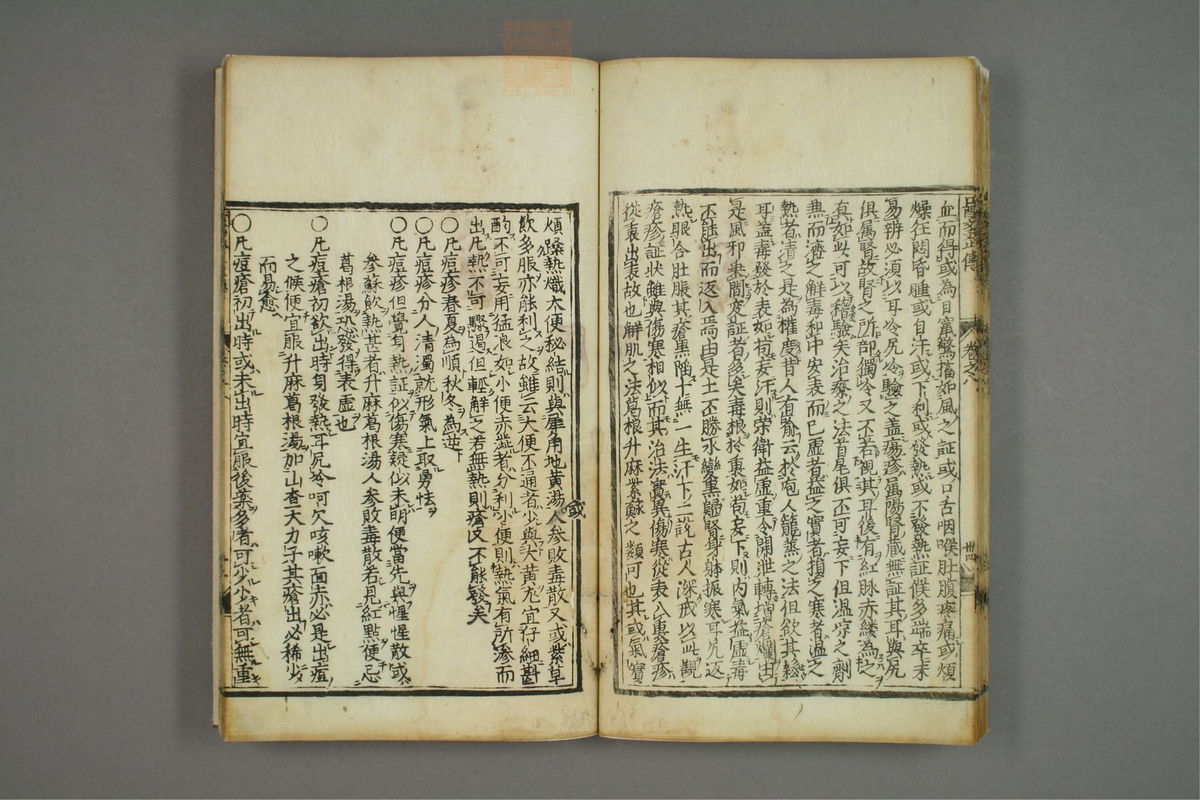 血而得或為目竄驚搐如風之証或口舌咽喉肚腹疼痛或煩
燥狂悶昏睡或自汗或下利或發熱或不發熱証候多端卒未
易辨必須以耳冷尻冷驗之盖瘍疹属陽腎蔵無証其耳與尻
俱属腎故腎之所部獨冷又不若視其耳後有紅脉赤縷為之
真如此可以稽驗矣治療之法首尾俱不可妄下但温凉之劑
𠔥而濟之解毒和中安表而已虚者益之實者損之寒者温之
熱者清之是為權度昔人有喻云於庖人籠蒸之法但欲其鬆
耳盖毒發於表如苟妄汗則荣衛益虚重令開泄轉増瘡爛由
是風邪乗間変証者多矣毒根於裏如苟妄下則内氣益虚毒
不能出而返入焉由是土不勝水變黒歸腎身躰振寒耳尻返
熱眼合肚脹其瘡黒陥十無一生汗下二説古人深戒以此觀
瘡疹証状雖與傷寒相似而其治法實異傷寒從表入裏瘡疹
從裏出表故也解肌之法葛根升麻紫蘇之類可也其或氣實
煩躁熱熾大便秘結則與犀角地黄湯人参敗毒散又或紫草
飲多服亦能利之故雖云大便不通者少與大黄尤宜仔細斟
酌不可妄用猛浪如小便赤澁者分利小便則熱氣有所滲而
出凡熱不可驟遏但輕解之若無熱則瘡又不能發矣
〇凡痘疹春夏為順秋冬為逆
〇凡痘疹分人清濁就形氣上取勇怯
〇凡痘疹但覺身熱証似傷寒疑似未明便當先與惺惺散或
参蘇飲熱甚者升麻葛根湯人参敗毒散若見紅點便忌
葛根湯恐發得表虚也
〇凡痘瘡初欲出時身發熱耳尻冷呵欠咳嗽面赤必是出痘
之候便宜服升麻葛根湯加山查大力子其瘡出必稀少
而易愈
〇凡痘瘡初出時或未出時宜服後薬多者可少少者可無重
卷之八